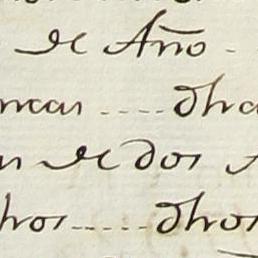 de Año
ncas .... dha
de dos
hos ..... dhos